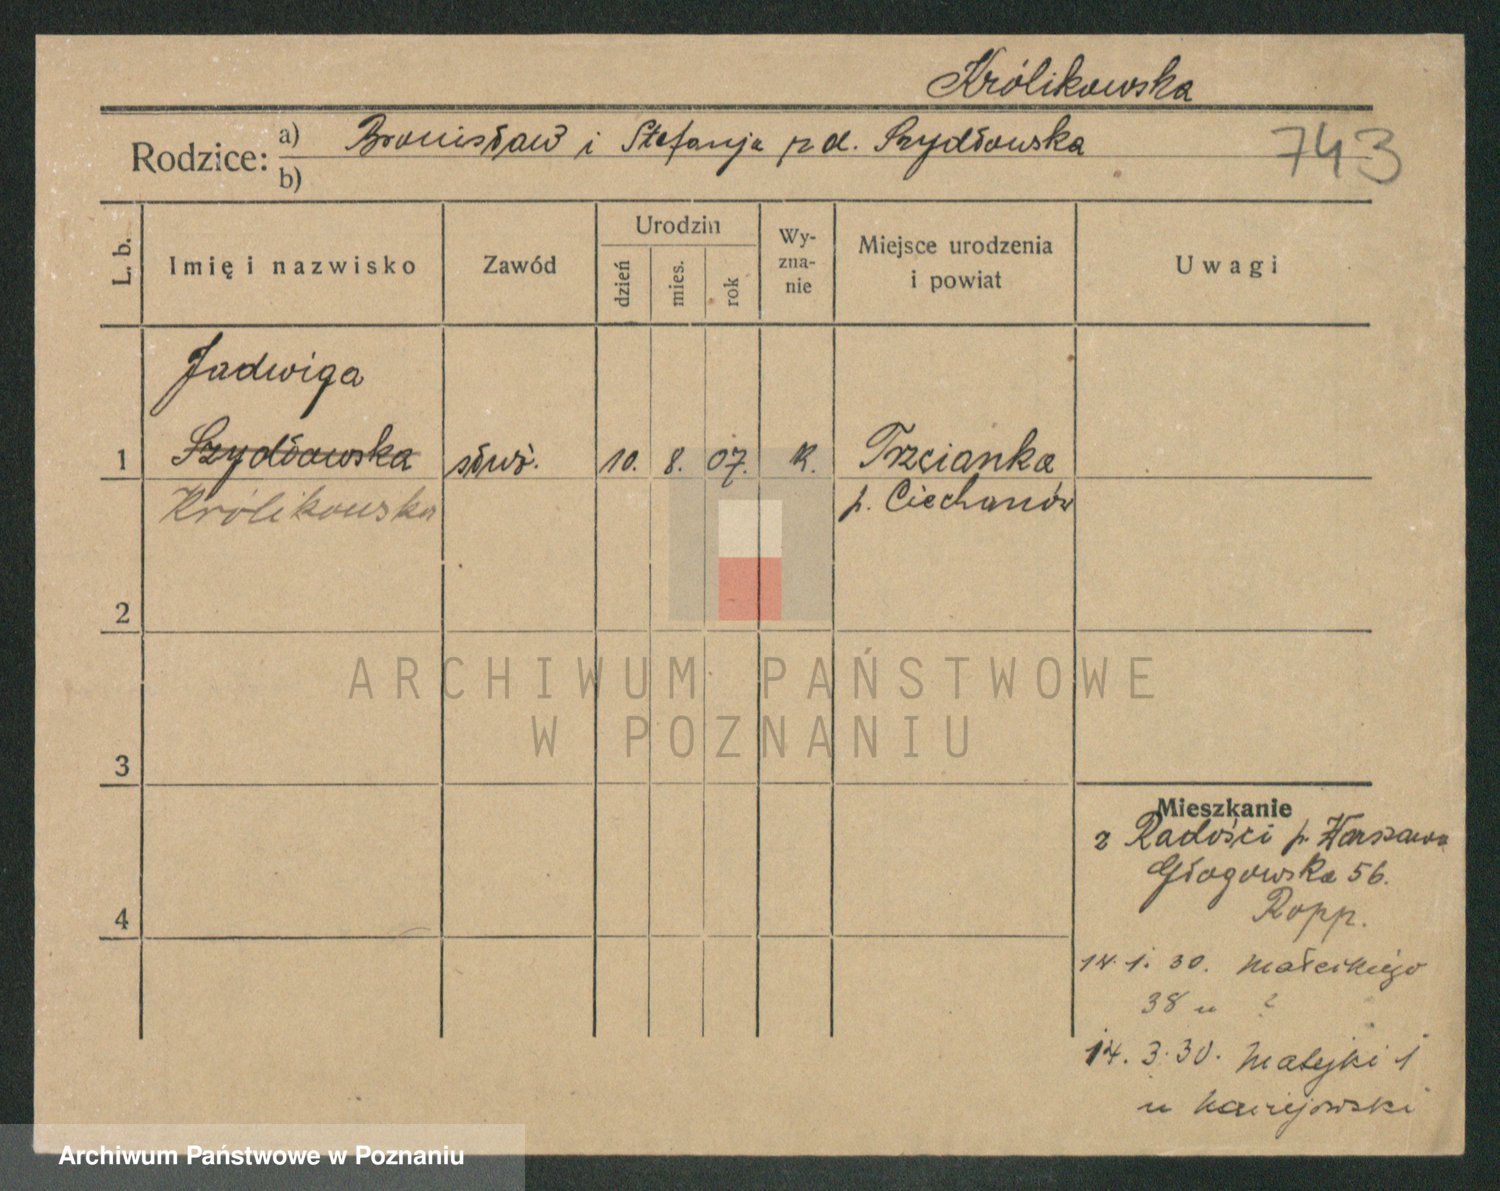 Królikowska
Rodzice: a) Bronisław i Stefanja pd. Szydłowska
b)
743
L. b.
Imię i nazwisko
Zawód
Urodzin
dzień
mies.
rok
Wy-
zna-
nie
Miejsce urodzenia
i powiat
Uwagi
Jadwiga
1 Szydłowska służ. 10. 8. 07. K. Trzcianka
Królikowska p. Ciechanów
2
3
4
Mieszkanie
z Radości p. Warszawa
Głogowska 56.
Ropp.
14.1.30. Małeckiego
38 u ?
14.3.30. Matejki 1
u
ARCHIWUM PAŃSTWOWE
W POZNANIU
Archiwum Państwowe w Poznaniu